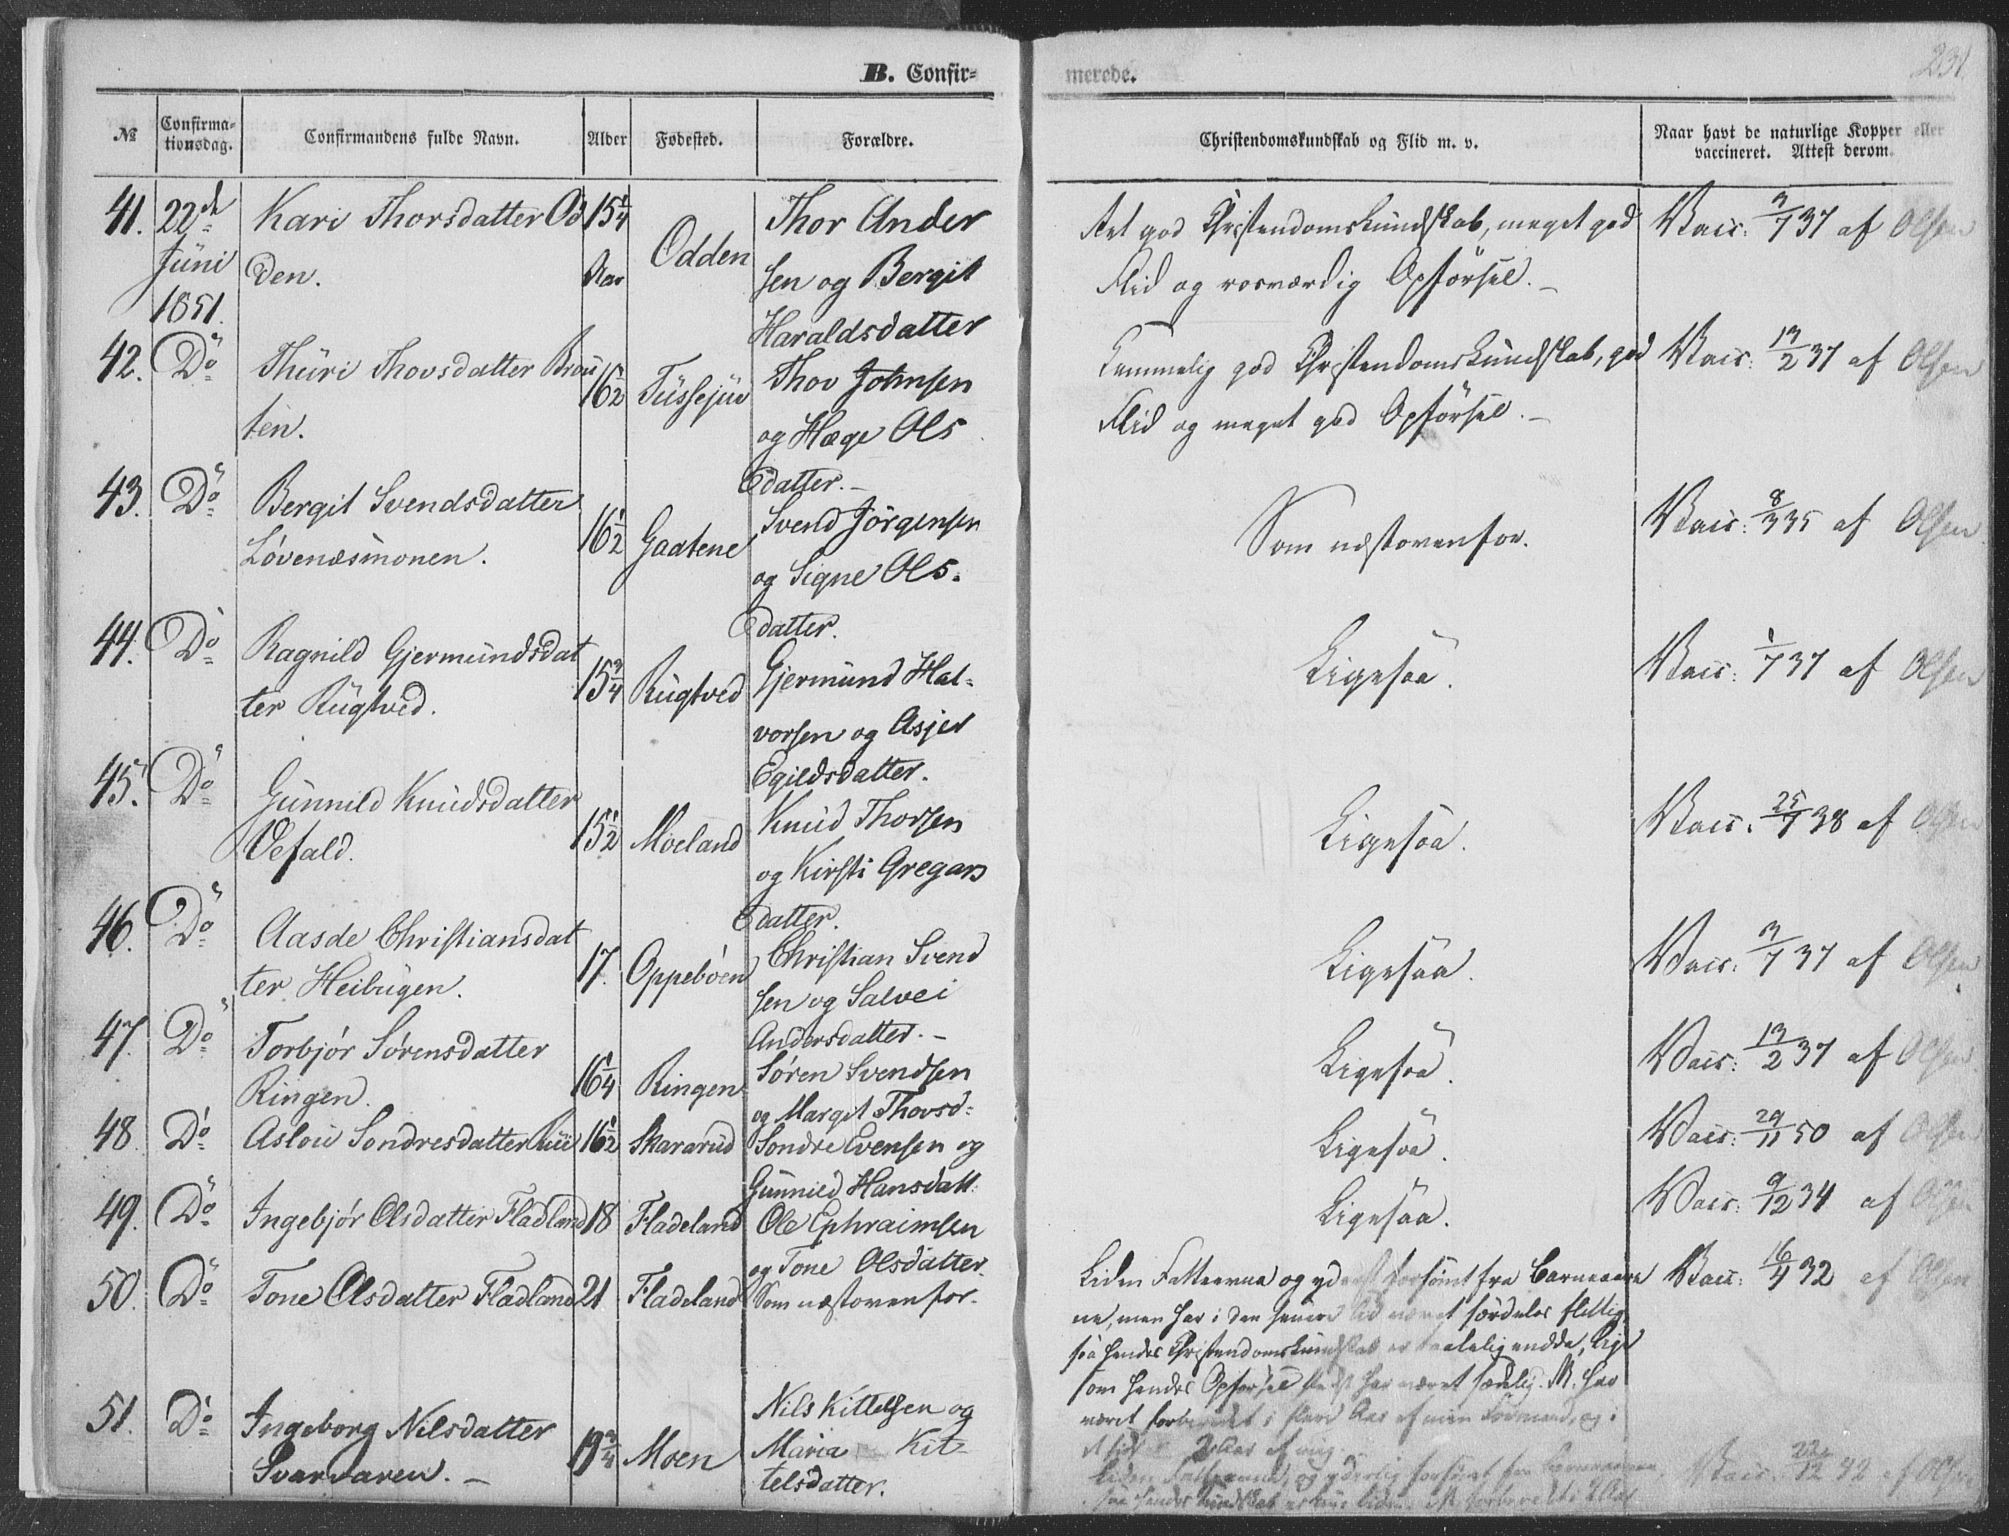 B. Confir-
merede.
231
№
Confirma-
tionsdag.
Confirmandens fulde Navn.
Alder
Fødested.
Forældre.
Christendomskundskab og Flid m. v.
Naar havt de naturlige Kopper eller
vaccineret. Attest derom.
41. 22de Juni 1851.
Kari Thorsdatter Od
den.
15 1/4 Aar
Odden
Thor Ander
sen og Bergit
Haraldsdatter
Ret god Christendomskundskab, meget god
Flid og rosværdig Opførsel. —
Vacc. 3/7 37 af Olsen
42. Do
Thuri Thovsdatter Brau
ten.
16 1/2
Tussejuv
Thov Johnsen
og Hæge Ols
datter. —
Temmelig god Christendomskundskab, god
Flid og meget god Opførsel. —
Vacc: 13/2 37 af Olsen
43. Do
Bergit Svendsdatter
Løvenæsmonen.
16 1/2
Gaatene
Svend Jørgensen
og Signe Ols-
datter.
Som næstovenfor.
Vacc: 8/3 35 af Olsen.
44. Do
Ragnild Gjermundsdat
ter Rugtved.
15 3/4
Rugtved
Gjermund Hal-
vorsen og Asjer
Egildsdatter.
Ligesaa.
Vacc: 1/7 37 af Olsen
45. Do
Gunnild Knudsdatter
Vefald.
15 1/2
Moeland
Knud Thorsen
og Kirsti Gregars
datter.
Ligesaa.
Vacc. 25/7 38 af Olsen
46. Do
Aasde Christiansdat
ter Heibugen.
17.
Oppebøen
Christian Svend
sen og Salvei
Andersdatter. —
Ligesaa.
Vacc. 3/7 37 af Olsen
47. Do
Torbjør Sørensdatter
Ringen.
16 1/4
Ringen
Søren Svendsen
og Margit Thovsd:
Ligesaa.
Vacc: 13/2 37 af Olsen
48. Do
Aslou Sondresdatter Lui
16 1/2
Skararud
Sondre Evensen og
Gunnild Hansdatt.
Ligesaa.
Vacc: 29/11 50 af Olsen
49. Do
Ingebjør Olsdatter Fladland
18
Fladeland
Ole Ephraimsen
og Tone Olsdatter.
Ligesaa.
Vacc: 9/12 34 af Olsen
50. Do
Tone Olsdatter Fladland
21
Fladeland
Som næstovenfor.
Liden Fatteevne og yderst forsømt fra Barneaare
ne, men har i den senere Tid været særdeles flittig,
saa hendes Christendomskundskab er taalelig endda, lige
som hendes Opførsel stedse har været sædelig. N. har
været forberedet i flere Aar af min Formand, og i
2 Aar af mig.
Vacc: 16/4 32 af Olsen
51. Do
Ingeborg Nilsdatter
Svarvaren. —
19 3/4
Moen
Nils Kittelsen og
Maria Kit-
telsdatter.
Liden Fatteevne, og yderlig forsømt fra Barneaarene
saa hendes Kundskab er kun liden. forberedt i 2 Aar
Vacc. 22/12 42 af Olsen